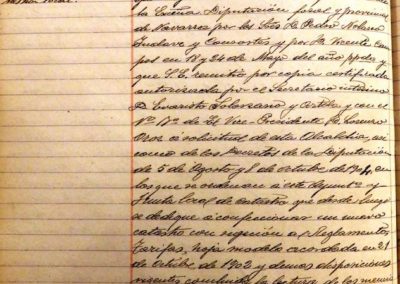 la Excma Diputación foral y provincial
de Navarra por los Sres Dn Pedro Nolasco
y Consortes y por Dn Vicente Cam
pos en 18 y 24 de Mayo del año ppdo y
que S.E. remitió por copia certificada
autorizada por el Secretario interino
Dn Evaristo Solorzano y Ortiz y con el
Vº Bº de El Vice-Presidente Dn Lorenzo
Oroz á solicitud de esta Alcaldía, así
como de los Decretos de la Diputación
de 5 de Agosto y 8 de Octubre de 1904 en
los que se ordenan á este Ayuntº y
Junta local de catastro que desde luego
se dedique á confeccionar un nuevo
catastro con sujeción a Reglamentos
Tarifas, hoja modelo acordada en 21
de Octubre de 1902 y demas disposiciones
la lectura de los